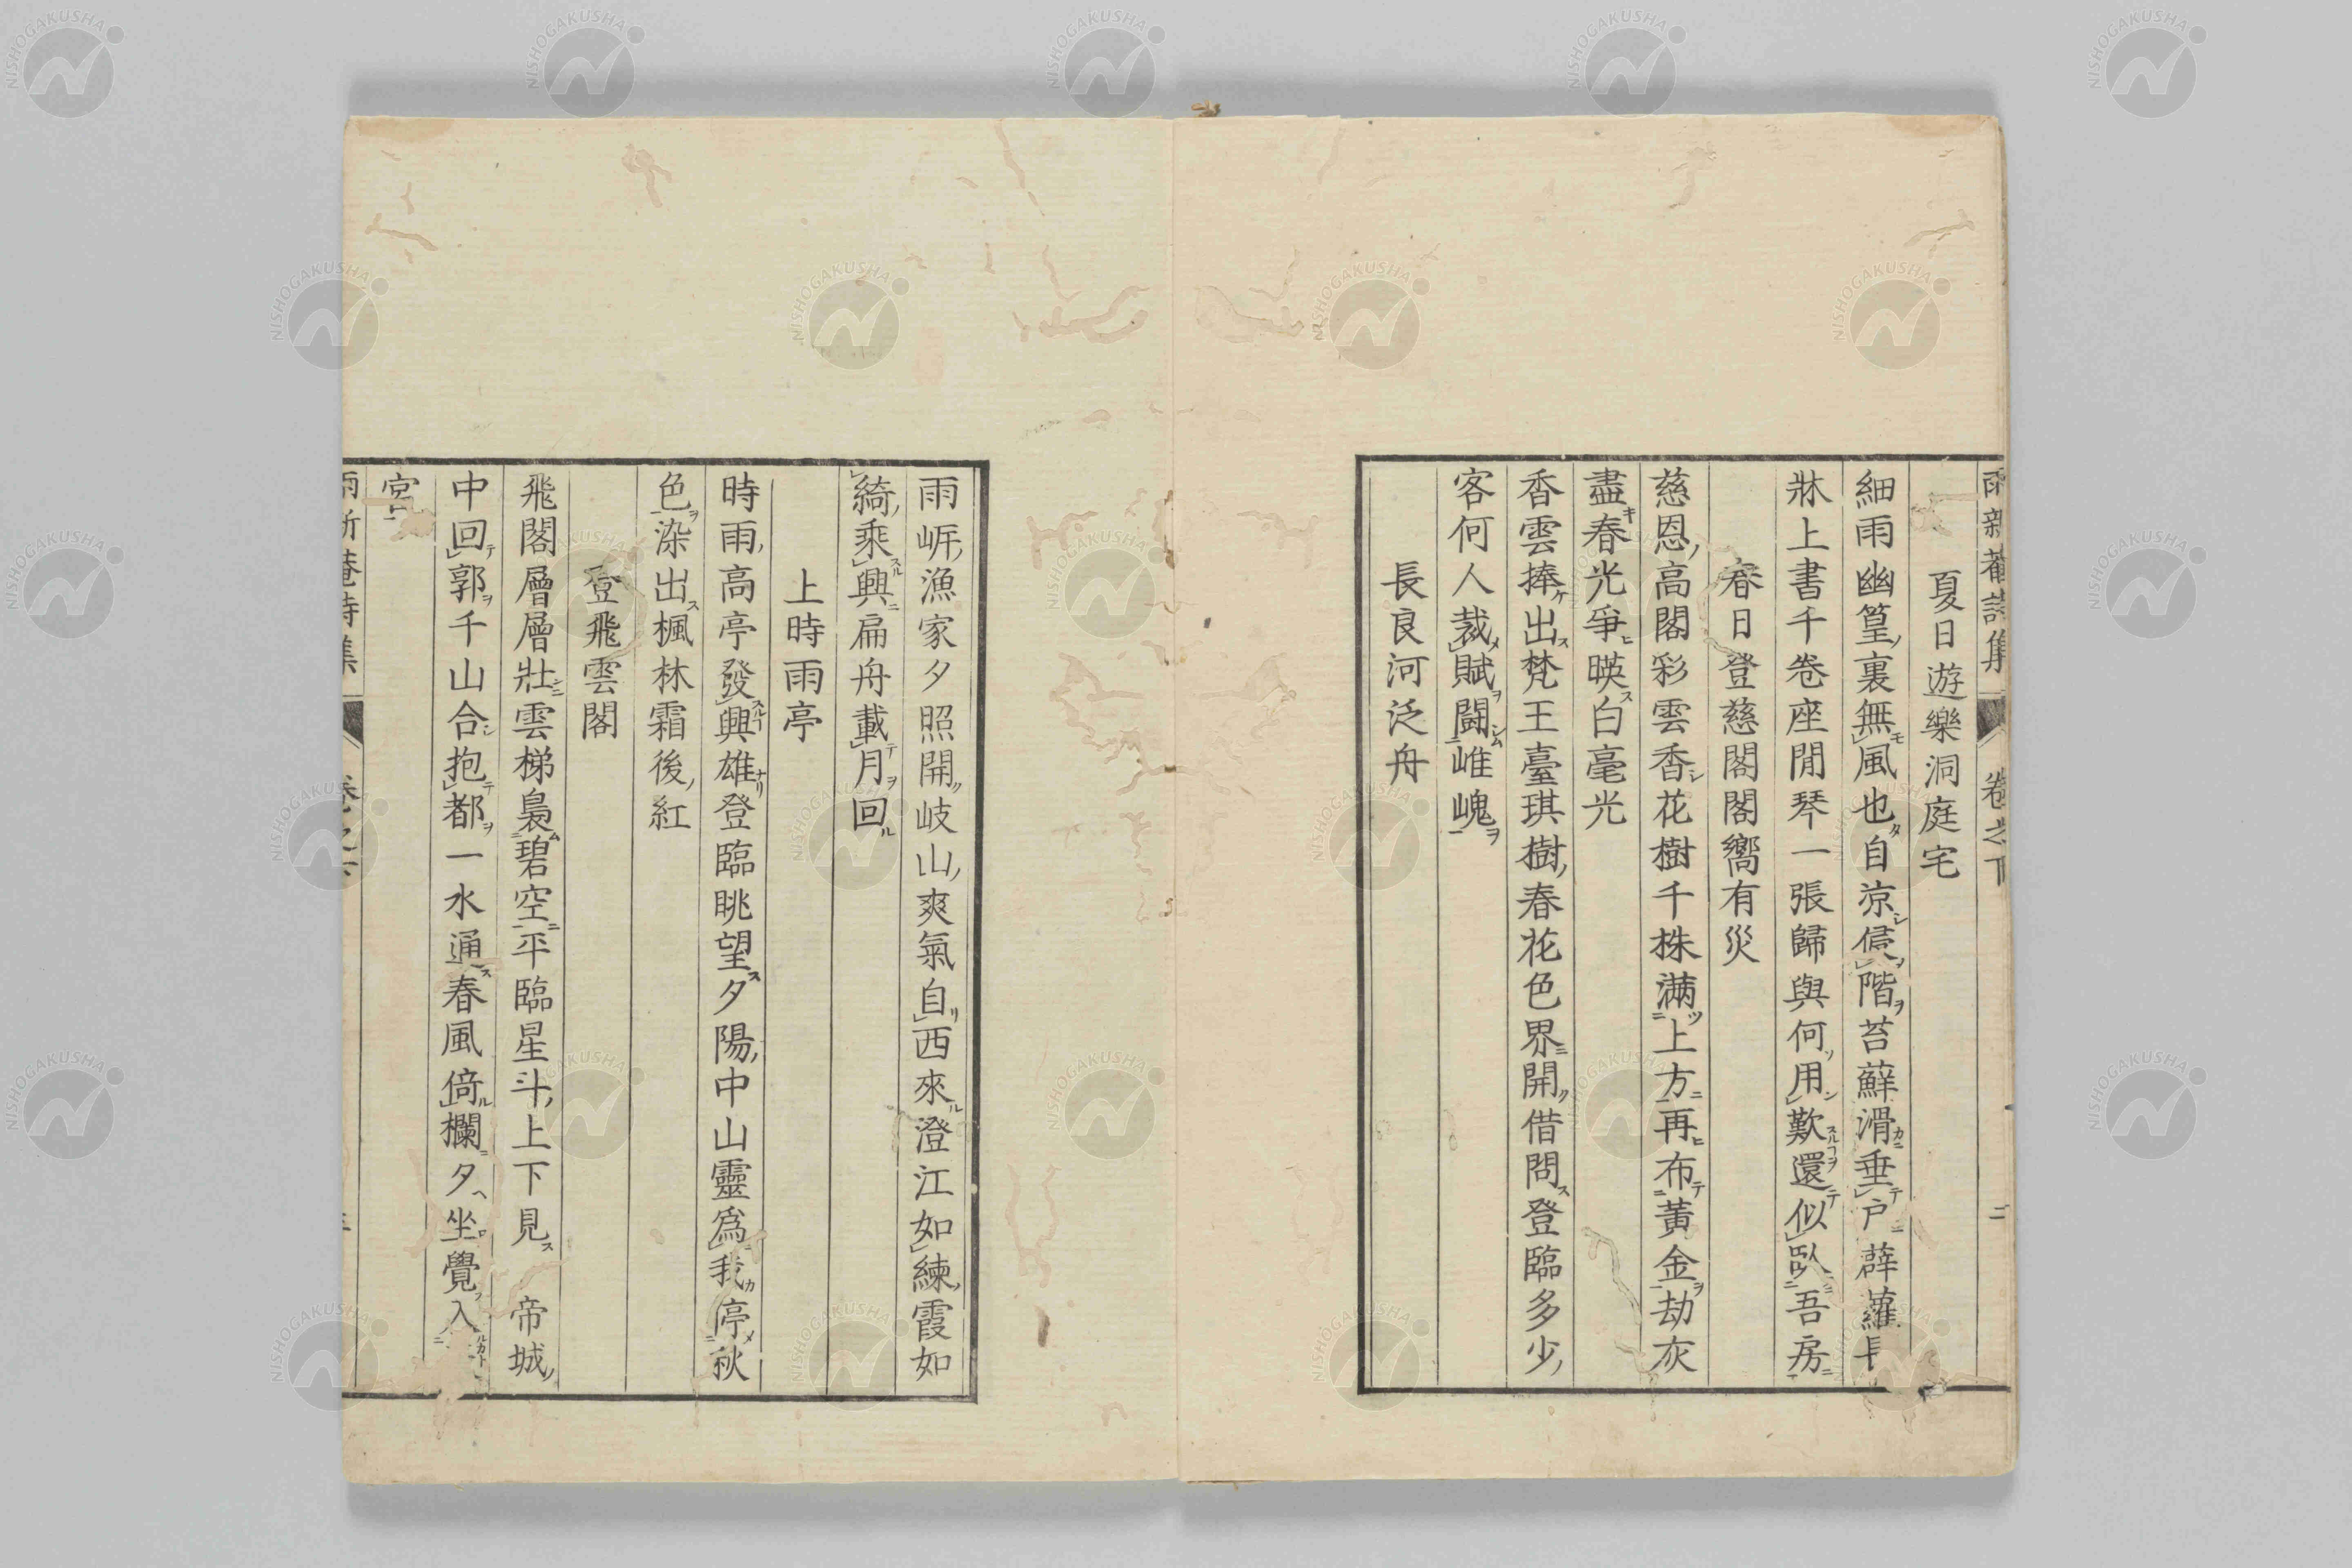 雨新菴詩集 卷之下 二
夏日遊樂洞庭宅
細雨幽篁裏無風也自凉侵階苔蘚滑垂戸薜蘿長
牀上書千卷座閒琴一張歸與何用歎還似臥吾房
春日登慈閣閣嚮有災
慈恩高閣彩雲香花樹千株滿上方再布黃金劫灰
盡春光爭暎白毫光
香雲捧出梵王臺琪樹春花色界開借問登臨多少
客何人裁賦鬪崔嵬
長良河泛舟
雨岸漁家夕照開岐山爽氣自西來澄江如練霞如
綺乘興扁舟載月回
上時雨亭
時雨高亭發興雄登臨眺望夕陽中山靈爲我停秋
色染出楓林霜後紅
登飛雲閣
飛閣層層壯雲梯裊碧空平臨星斗上下見 帝城
中回郭千山合抱都一水通春風倚欄夕坐覺入
宮
雨新菴詩集 卷之下